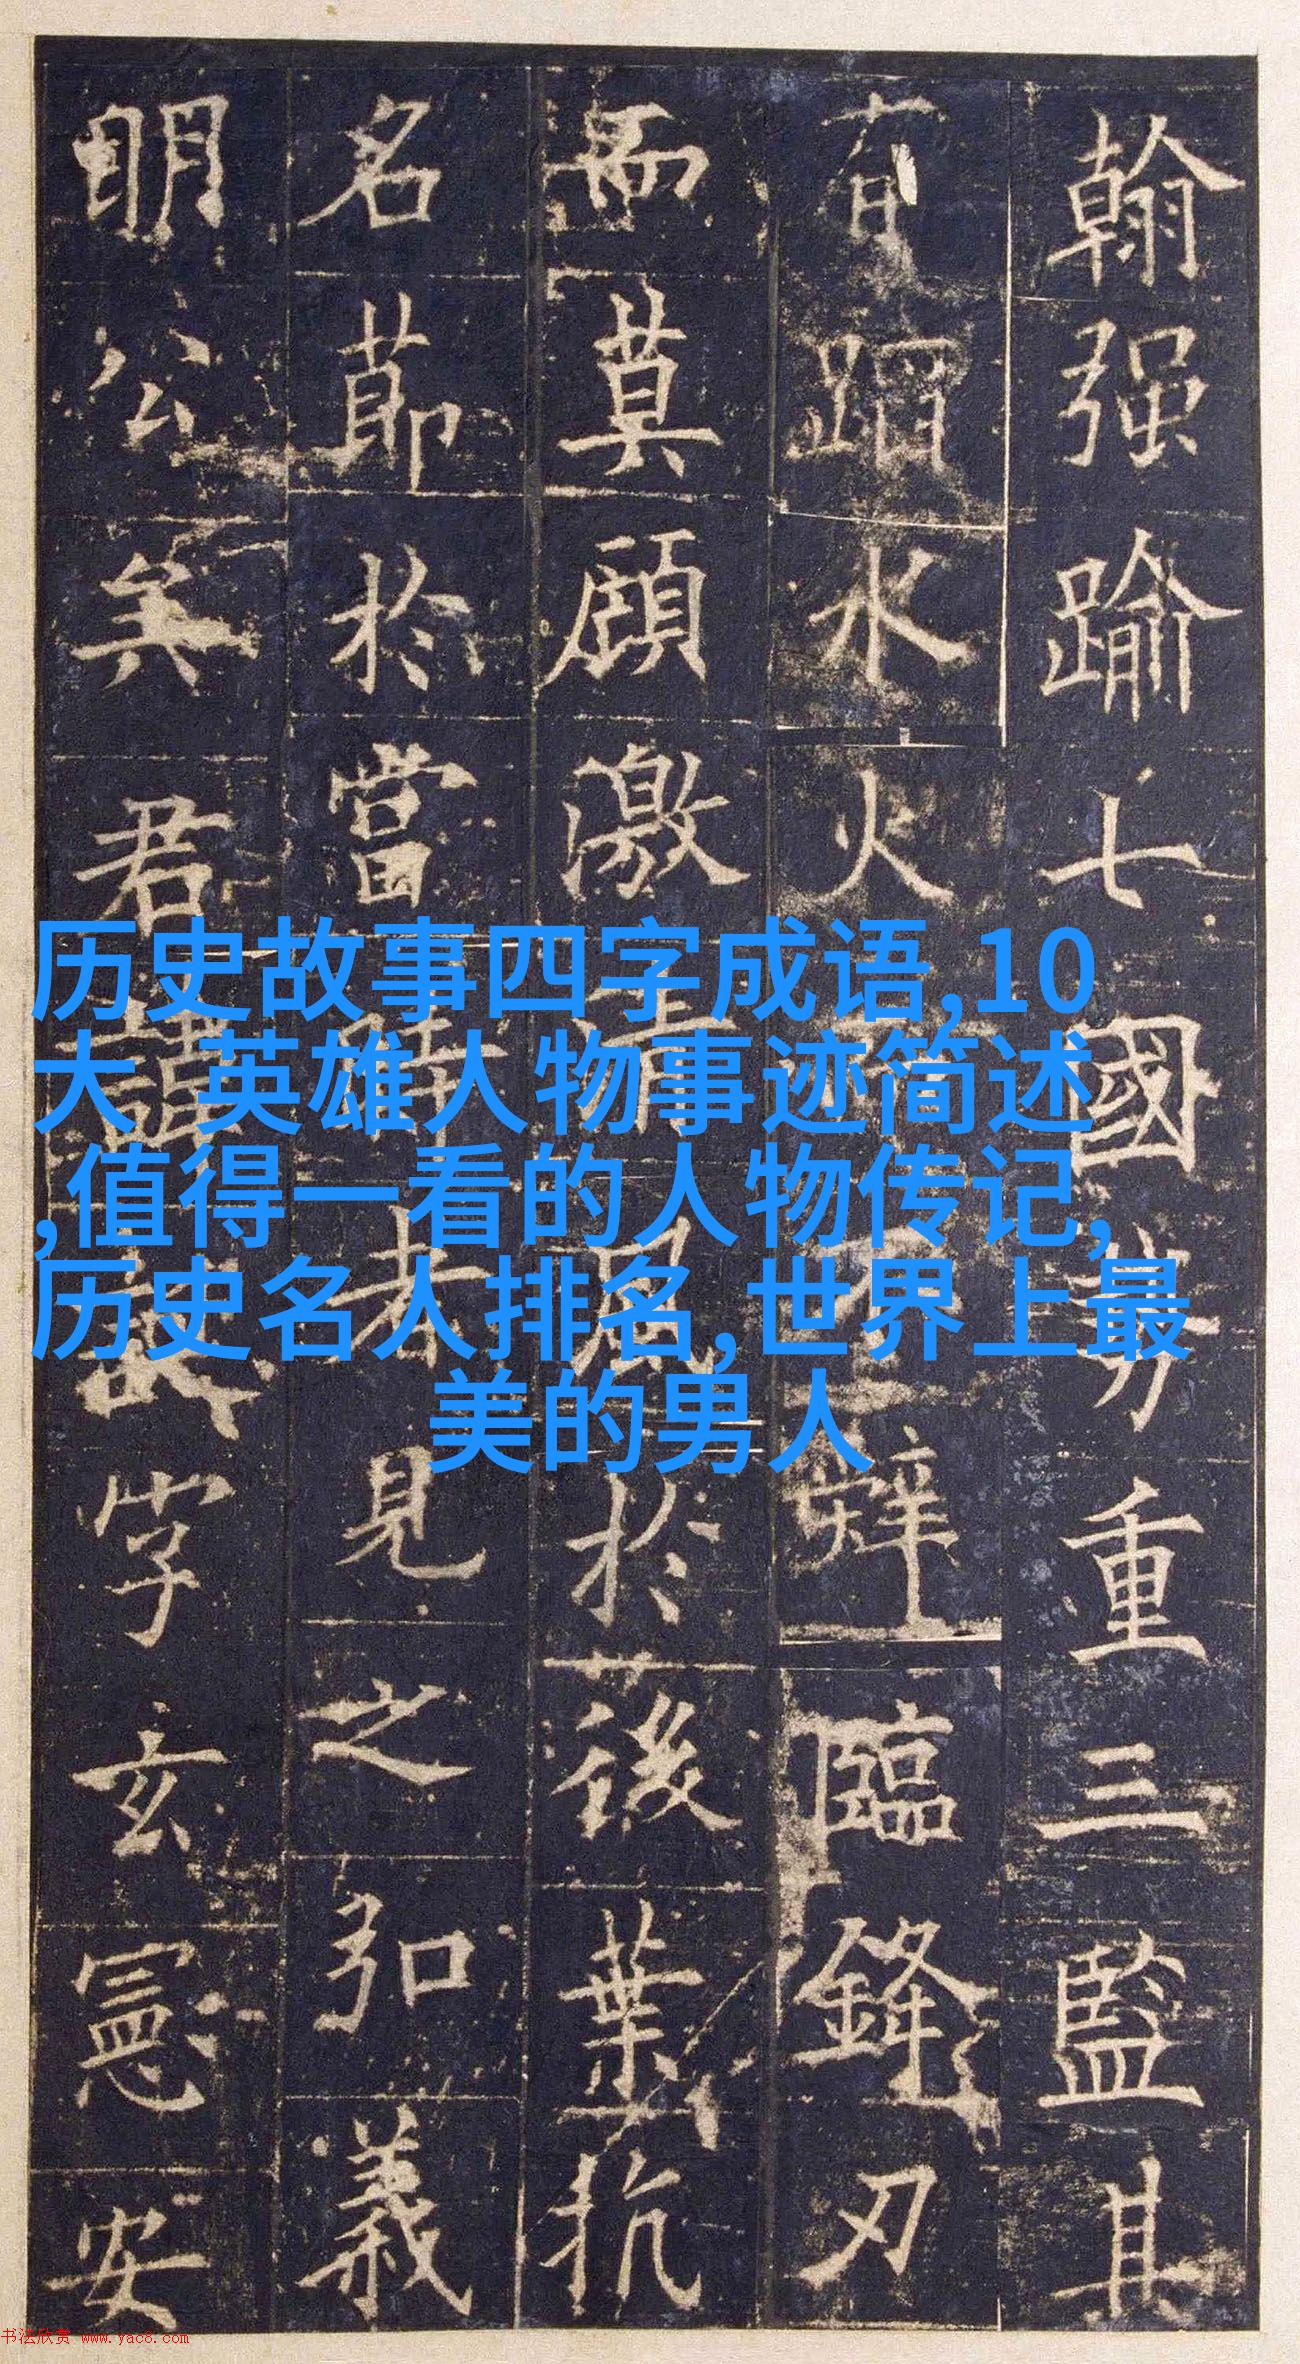 翰强踰七國勢重三監其
有蹈水火而不辤臨鋒刃
而莫顧激清風於後葉抗
名節於當時者見之弘義
明公矣君諱誕字玄憲安
历史故事四字成语,10
大 英雄人物事迹简述
,值得一看的人物传记,
历史名人排名,世界上最
美的男人
书法欣赏 www.yac8.com